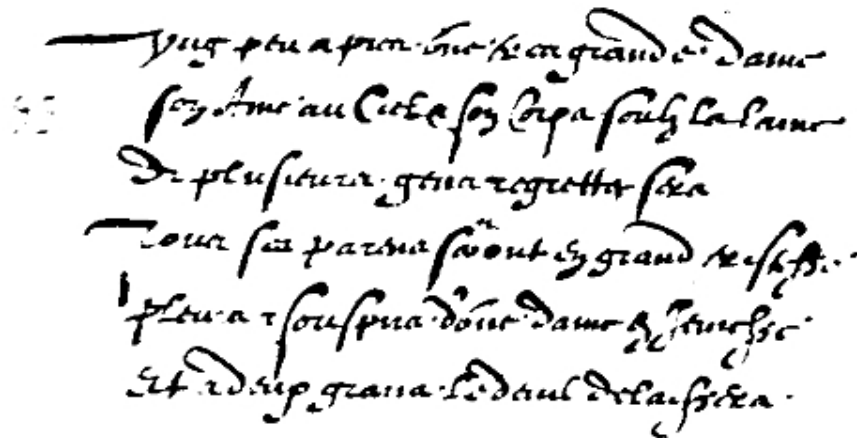 Vng peu apres vne tres grande dame
son Ame au Ciel & son Corps soulz la lame
De plusieurs gens regrettee sera
Tous ses parens seront en grand tristesse
Pleurs et souspirs d'vne dame en Jeunesse
Et a deux grans le deuil delaissera.